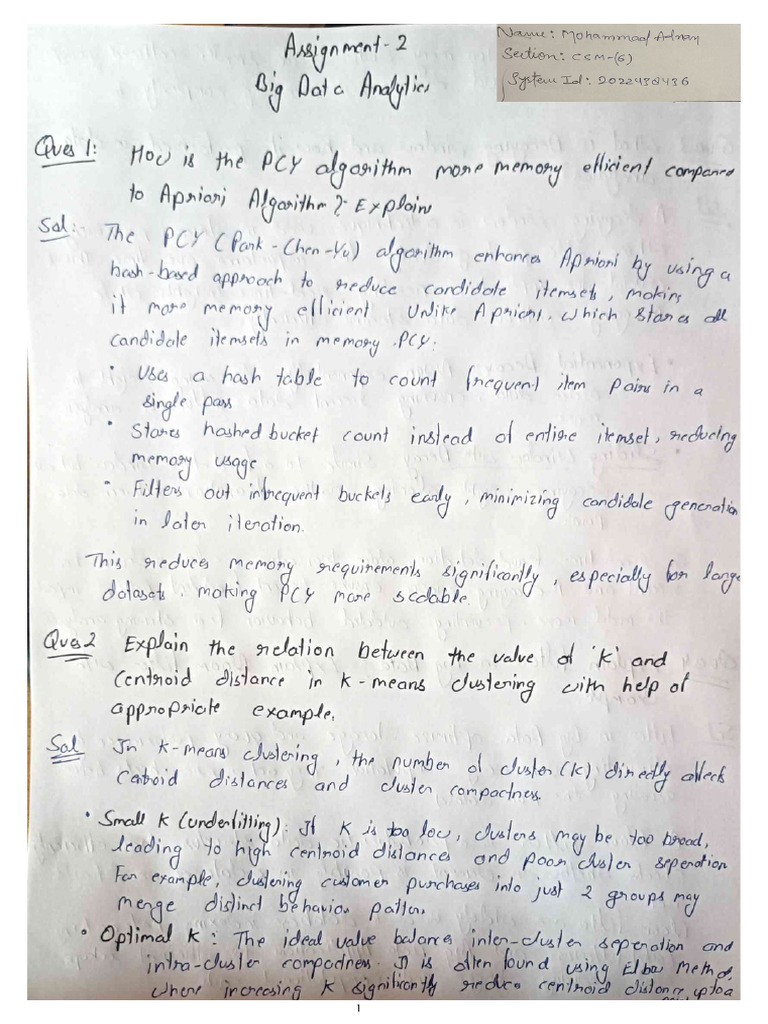 Assignment-2
Big Data Analytics
Name: Mohammad Adnan
Section: CSM-(G)
System Id: 2022438436
Ques 1: How is the PCY algorithm more memory efficient compared
to Apriori Algorithm? Explain
Sol: The PCY (Park-Chen-Yu) algorithm enhances Apriori by using a
hash-based approach to reduce candidate itemsets, making
it more memory efficient Unlike Apriori, which stores all
candidate itemsets in memory PCY:
• Uses a hash table to count frequent item pairs in a
single pass
• Stores hashed bucket count instead of entire itemset, reducing
memory usage
• Filters out infrequent buckets early, minimizing candidate generation
in later iteration.
This reduces memory requirements significantly, especially for large
datasets, making PCY more scalable.
Ques 2 Explain the relation between the value of 'K' and
Centroid distance in K-means clustering with help of
appropriate example.
Sol In K-means clustering, the number of cluster (K) directly affects
Catroid distances and cluster compactness.
• Small K (underfitting): If K is too low, clusters may be too broad,
leading to high centroid distances and poor cluster seperation
For example, clustering customer purchases into just 2 groups may
merge distinct behavior patter.
• Optimal K: The ideal value balances inter-cluster seperation and
intra-cluster compactness. It is often found using Elbow Method,
where increasing K significantly reduce centroid distance upto a
1